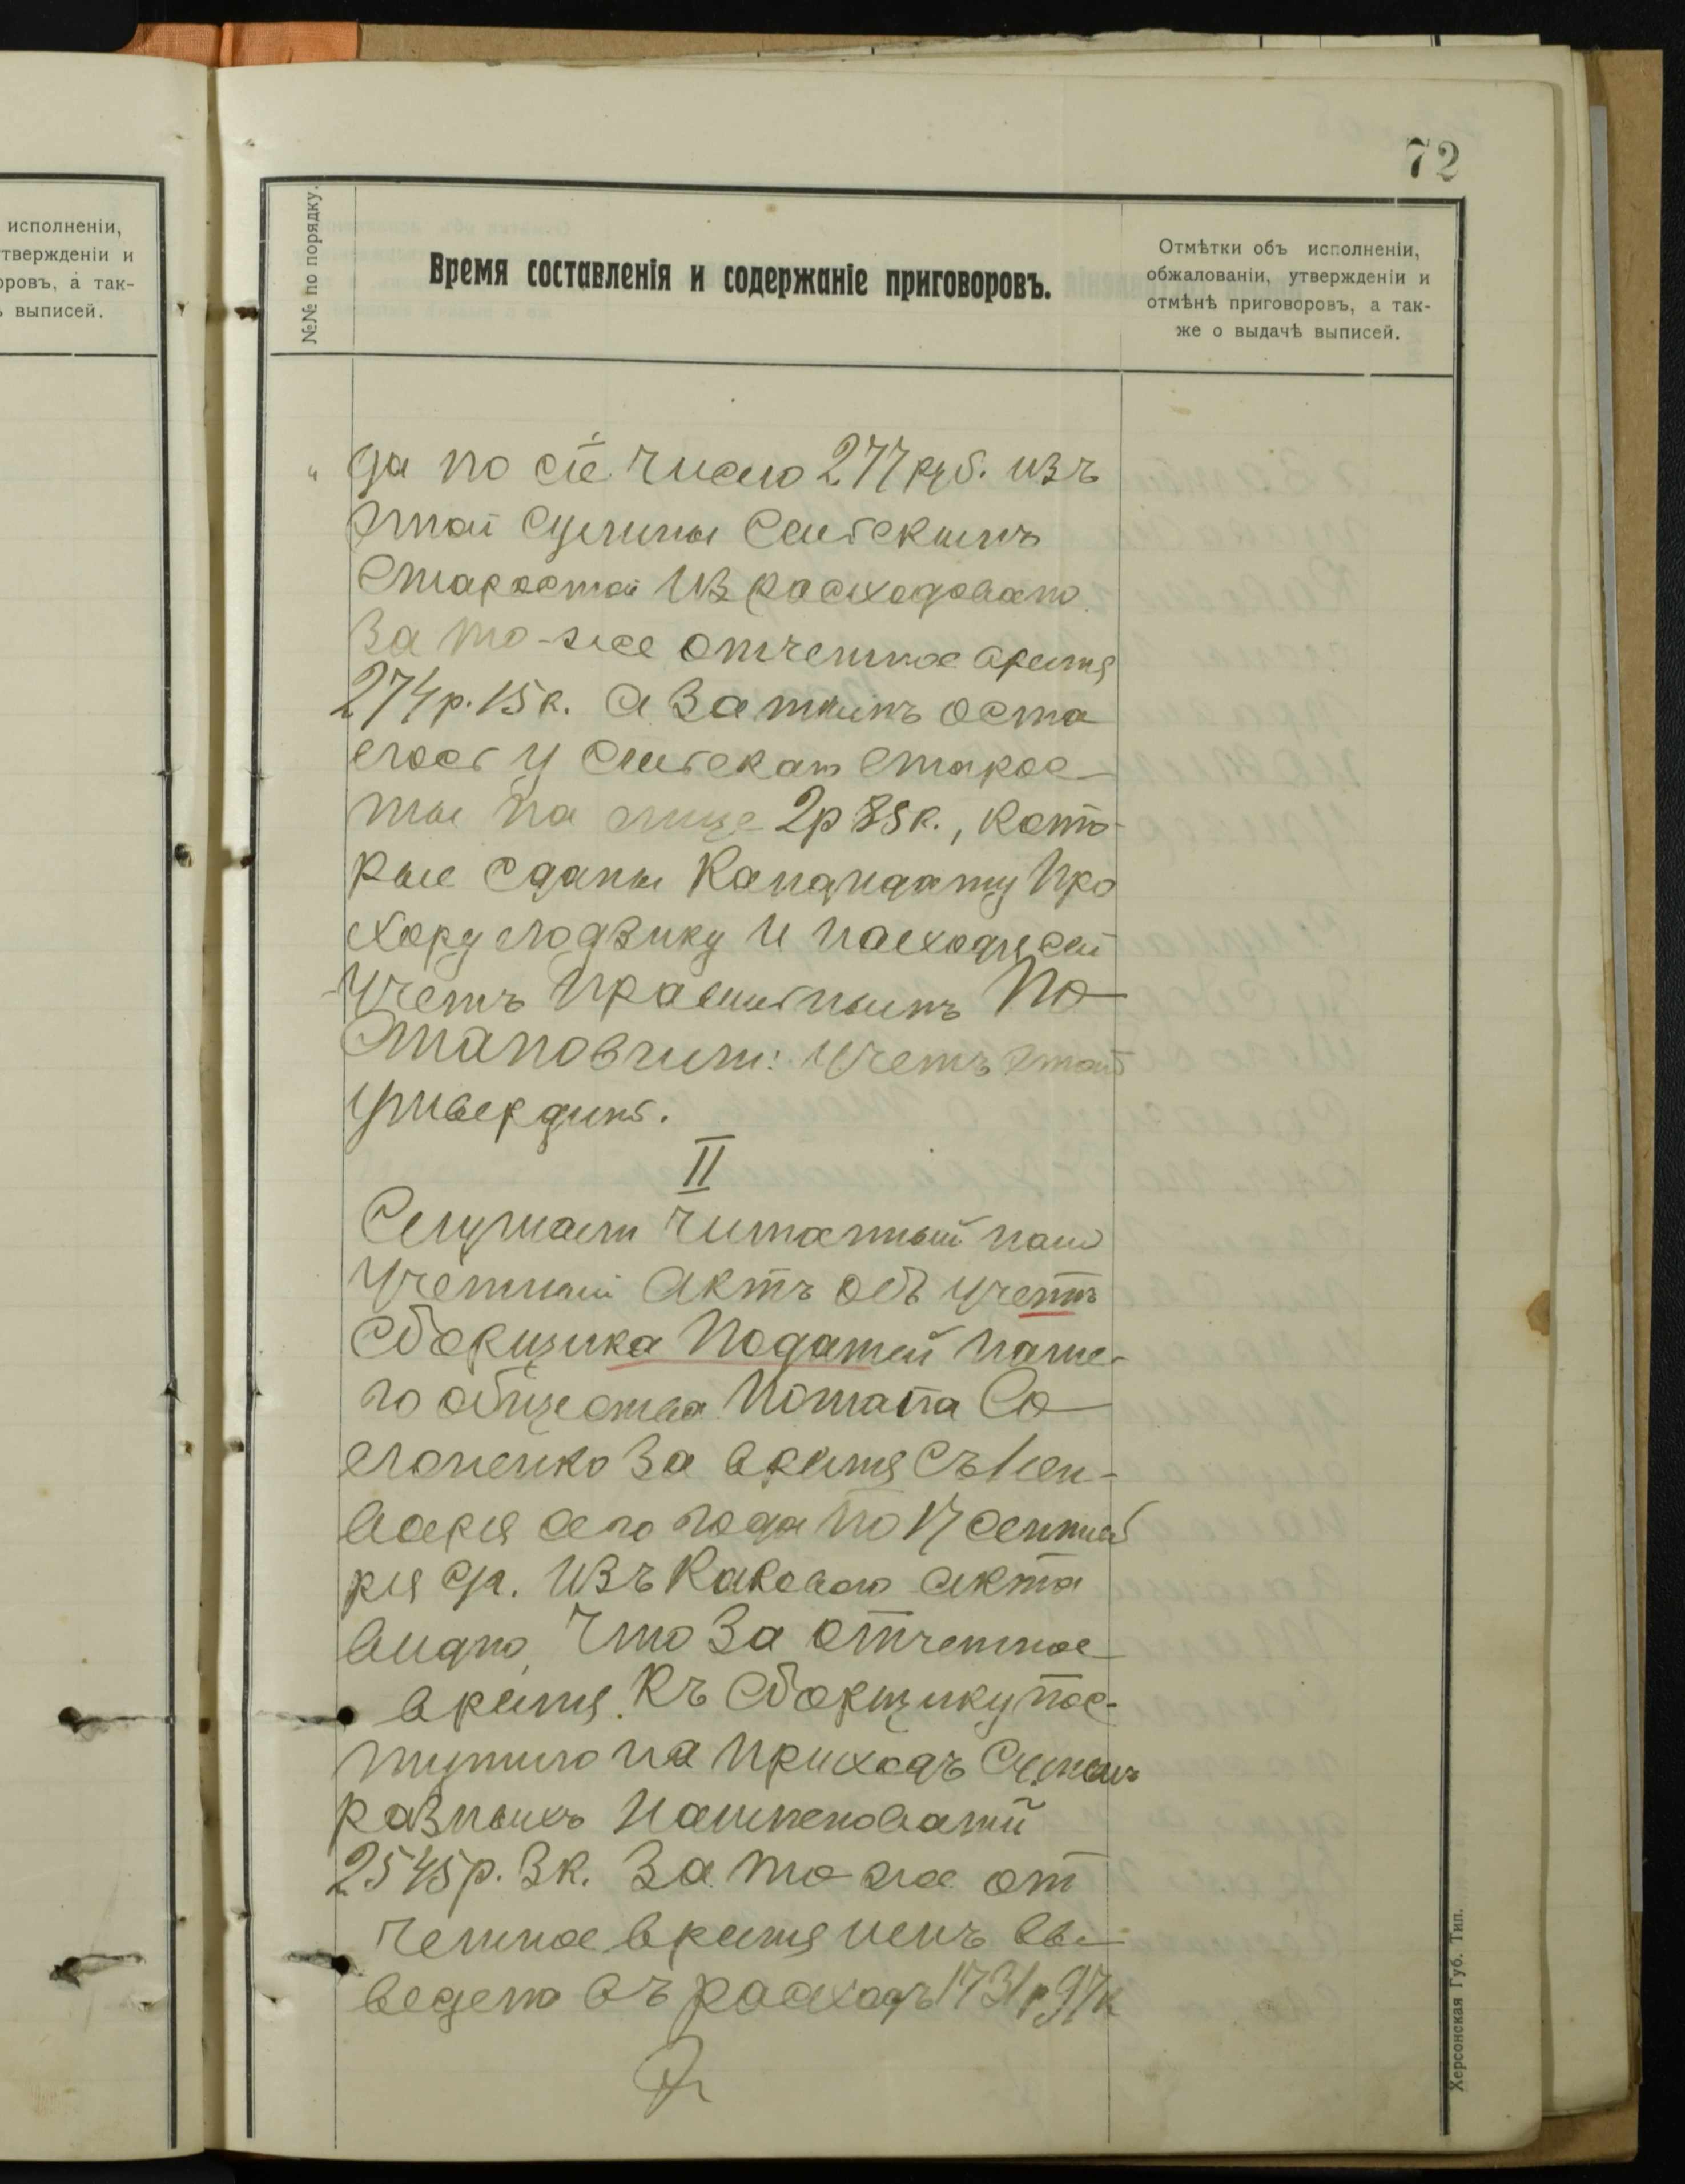 исполненіи,
твержденіи и
оровъ, а так-
выписей.
72
№№ по порядку.
Время составленія и содержаніе приговоровъ.
Отмѣтки объ исполненіи,
обжалованіи, утвержденіи и
отмѣнѣ приговоровъ, а так-
же о выдачѣ выписей.
да по сіе число 277 руб. изъ
этой сумы Сельскимъ
Старостой израсходовано
за то-же отчетное время
274 р. 15 к. а затимъ оста
лось у Сельскаго Старос-
ты на лице 2р 85к., кото-
рые сданы Кандидату Про
хору Лодзику и находя сей
Учетъ Правильнымъ По-
становили: Учетъ этотъ
утвердить.
II
Слушали читанный нами
Учетный Актъ объ учетѣ
Сборщика Податей наше-
го общества Потапа Со-
лоненко за время съ 1 ян-
варя сего года по 17 сентяб
ря с/г. изъ каковаго акта
видно, что за отчетное
время къ Сборщику пос-
тупило на приходъ Сумъ
разныхъ наименованій
2545р. 3к. за то же от
четное время имъ вы-
ведено въ расходъ 1731 р 97к
Херсонская Губ. Тип.